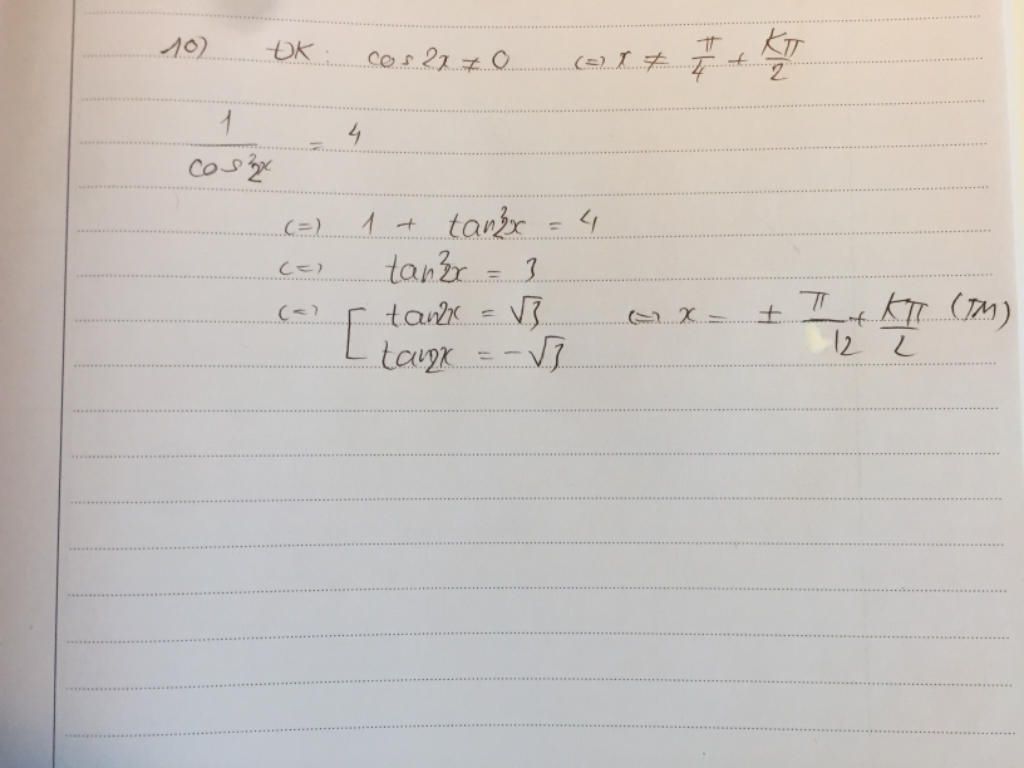 10) ĐK: cos2x ≠ 0 (=) x ≠ π/4 + Kπ/2
1/cos²2x = 4
(=) 1 + tan²2x = 4
(=) tan²2x = 3
(=) [ tan2x = √3 (=) x = ± π/12 + Kπ/2 (TM)
tan2x = -√3